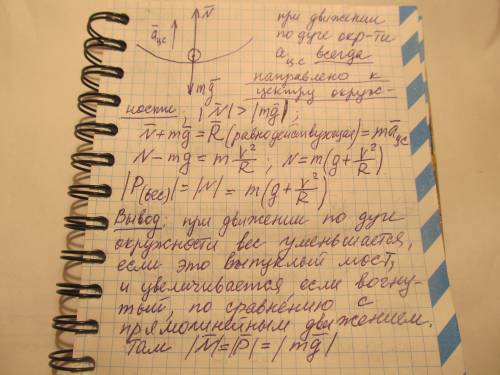 N̄
āцс
mḡ
при движении
по дуге окр-ти
aц.с всегда
направлено к
центру окруж-
ности; |N̄|>|mḡ|;
N̄+mḡ=R̄(равнодействующая)=māцс
N-mg=m v²/R ; N=m(g+v²/R)
|P̄(вес)|=|N̄|=m(g+v²/R)
Вывод: при движении по дуге
окружности вес уменьшается,
если это выпуклый мост,
и увеличивается если вогну-
тый, по сравнению с
прямолинейным движением.
Там |N̄|=|P̄|=|mḡ|